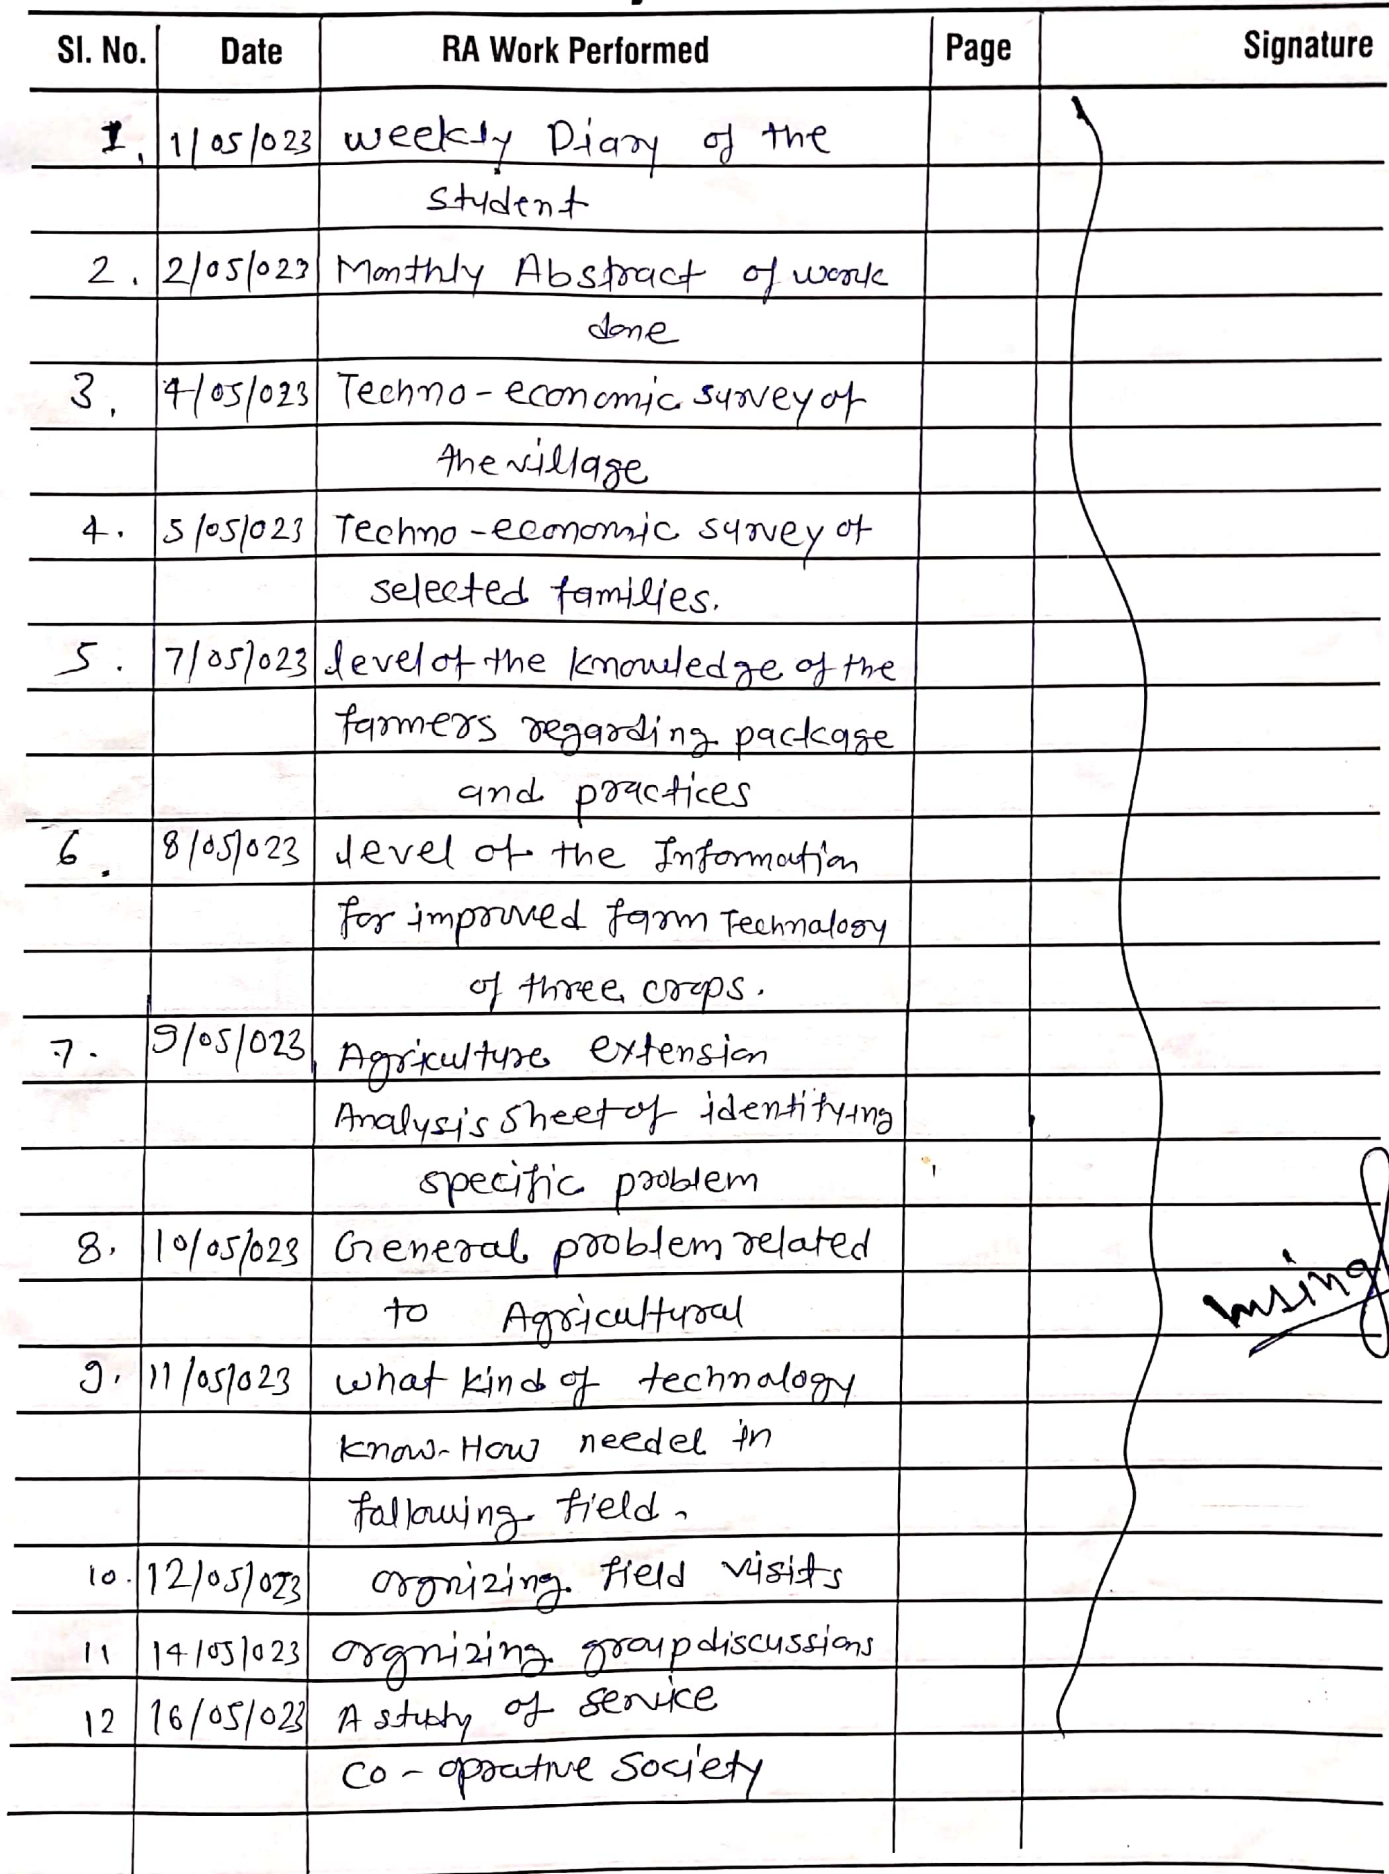 Sl. No. Date RA Work Performed Page Signature
1. 1/05/023 weekly Diary of the
student
2. 2/05/023 Monthly Abstract of work
done
3. 4/05/023 Techno-economic survey of
the village
4. 5/05/023 Techno-economic survey of
selected families.
5. 7/05/023 level of the knowledge of the
farmers regarding package
and practices
6. 8/05/023 level of the Information
for improved farm Technology
of three crops.
7. 9/05/023 Agriculture extension
Analysis sheet of identifying
specific problem
8. 10/05/023 General problem related
to Agricultural
9. 11/05/023 what kind of technology
know-How needel in
following field.
10. 12/05/023 orgnizing field visits
11 14/05/023 orgnizing group discussions
12 16/05/023 A study of service
co-oprative Society